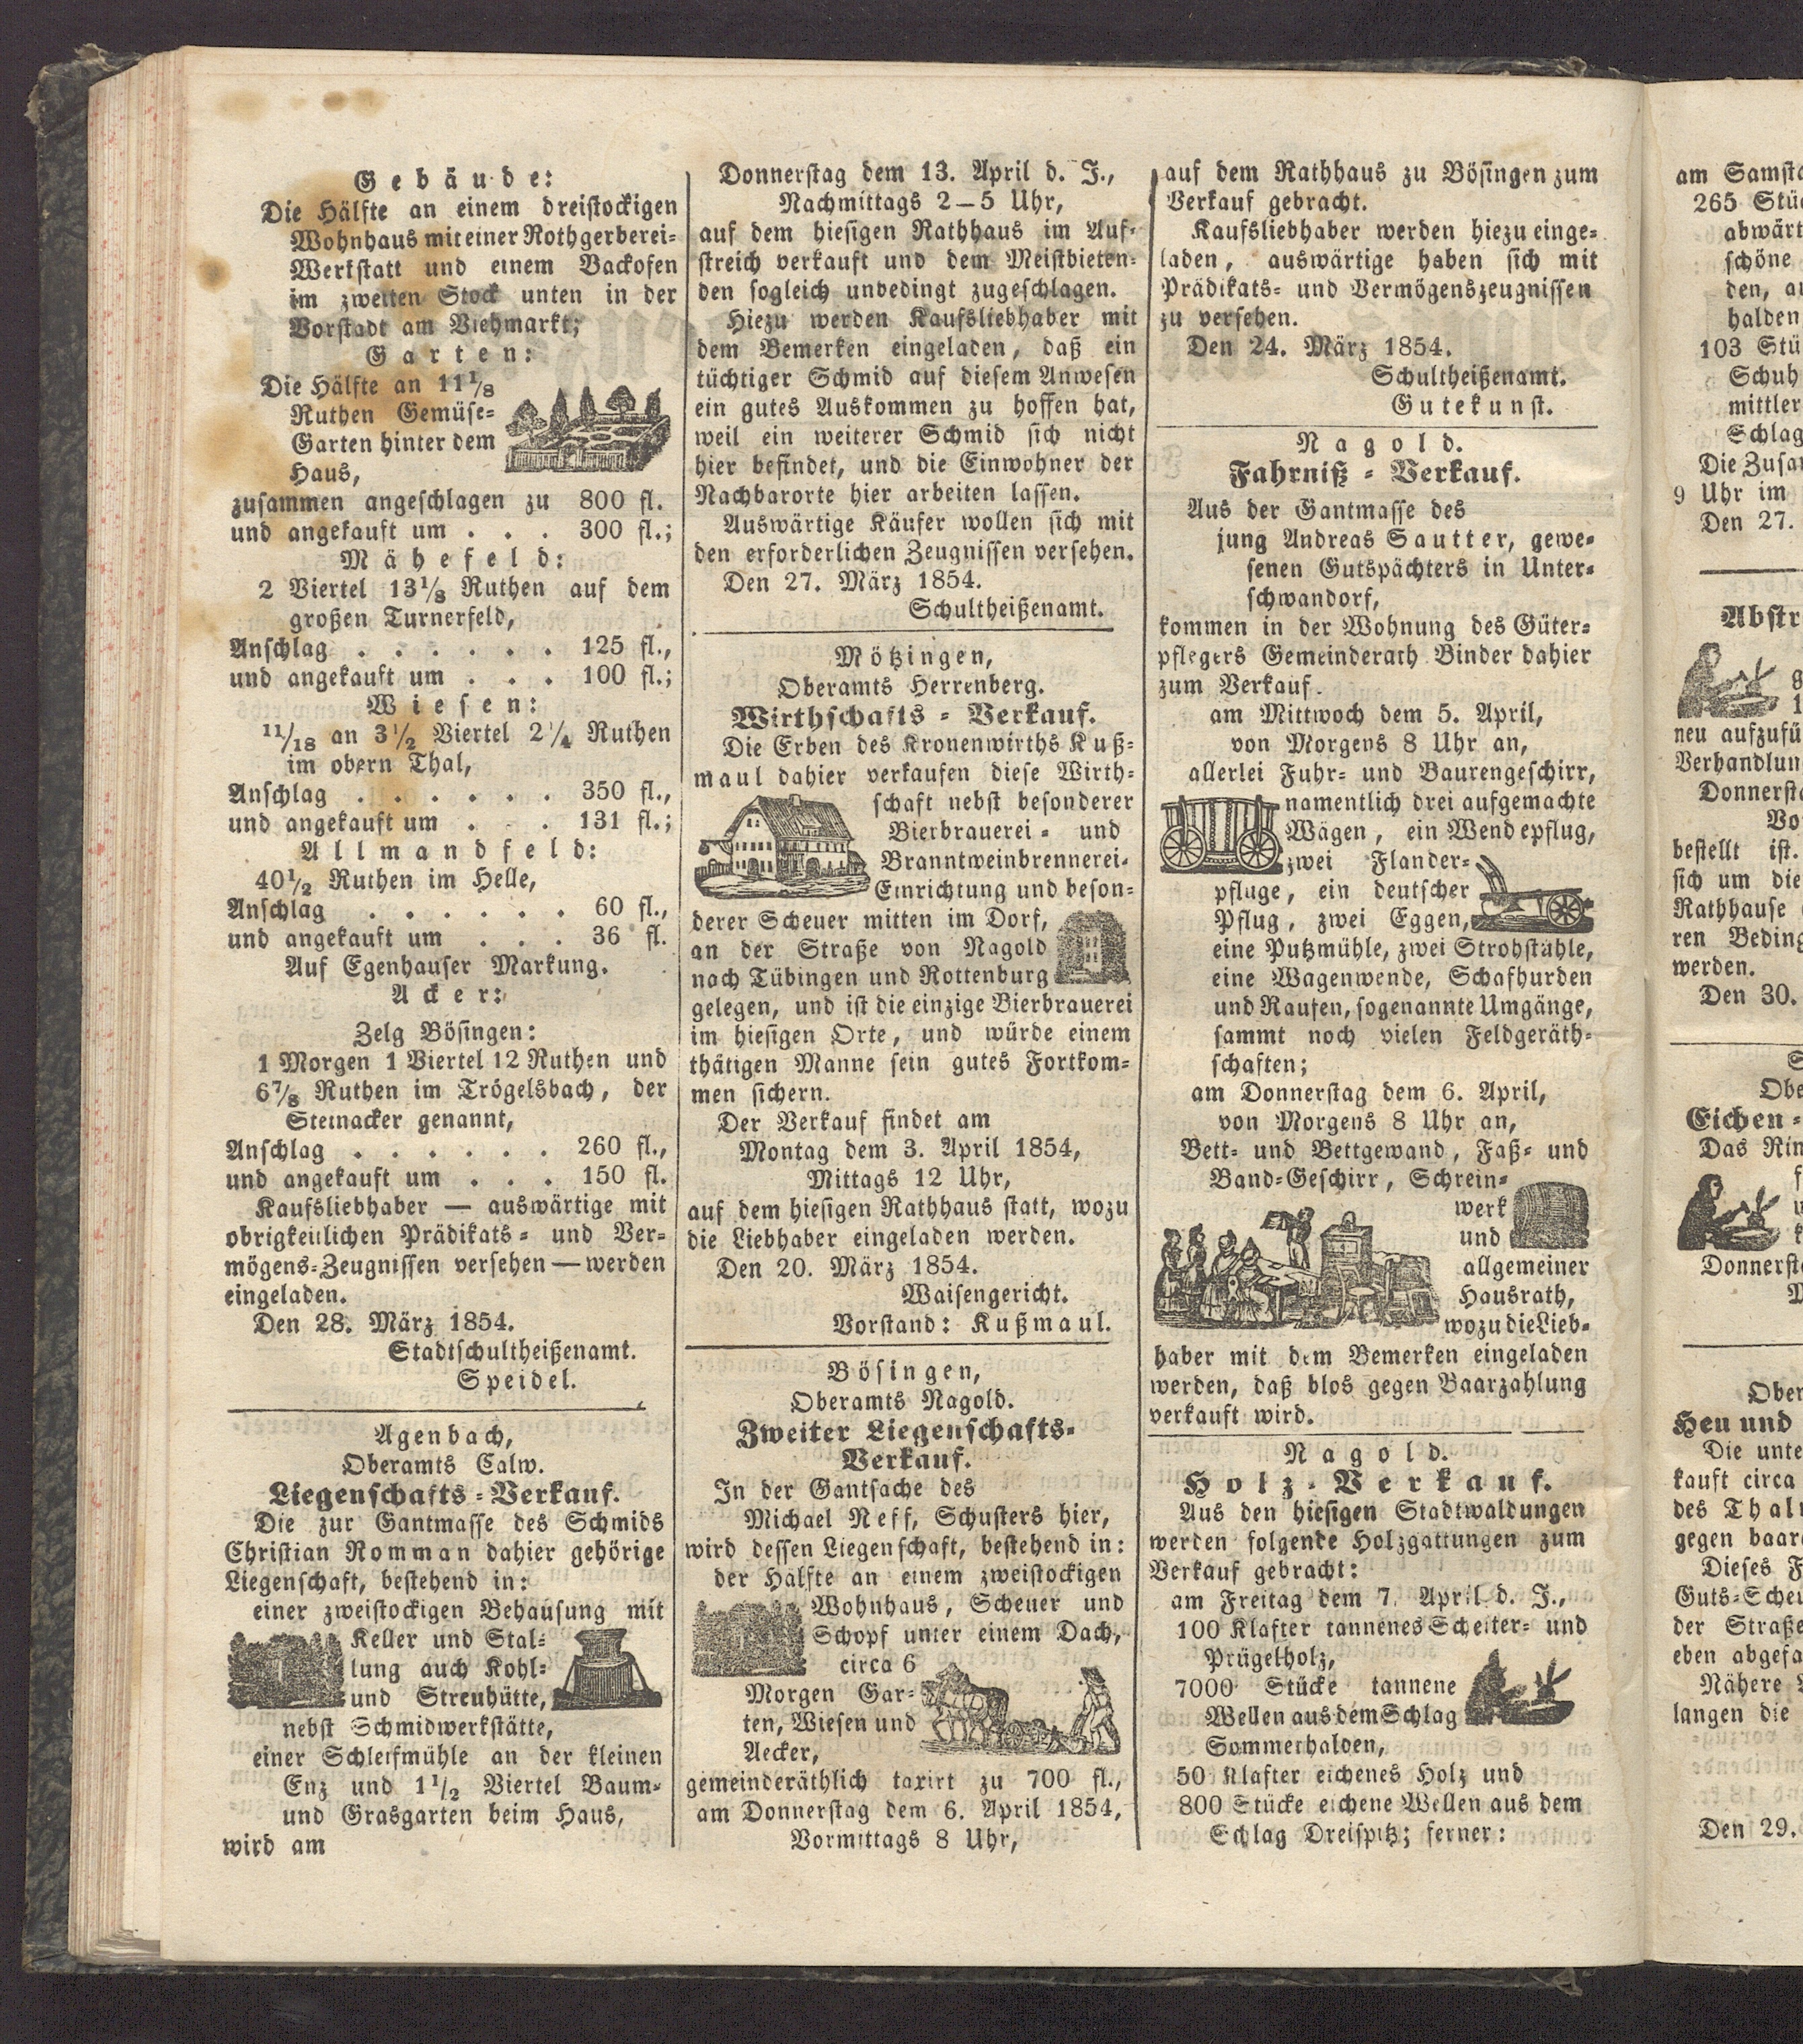 Gebäude:
Die Hälfte an einem dreistockigen
Wohnhaus mit einer Rothgerberei-
Werkstatt und einem Backofen
im zweiten Stock unten in der
Vorstadt am Viehmarkt;
Garten:
Die Hälfte an 11 1/8
Ruthen Gemüse-
Garten hinter dem
Haus,
zusammen angeschlagen zu 800 fl.
und angekauft um . . . 300 fl.;
Mähefeld:
2 Viertel 13 1/8 Ruthen auf dem
großen Turnerfeld,
Anschlag . . . . . . 125 fl.,
und angekauft um . . . 100 fl.;
Wiesen:
11/18 an 3 1/2 Viertel 2 1/4 Ruthen
im obern Thal,
Anschlag . . . . . . 350 fl.,
und angekauft um . . . 131 fl.;
Allmandfeld:
40 1/2 Ruthen im Helle,
Anschlag . . . . . . 60 fl.,
und angekauft um . . . 36 fl.
Auf Egenhauser Markung.
Acker:
Zelg Bösingen:
1 Morgen 1 Viertel 12 Ruthen und
6 7/8 Ruthen im Trögelsbach, der
Steinacker genannt,
Anschlag . . . . . . 260 fl.,
und angekauft um . . . 150 fl.
Kaufsliebhaber — auswärtige mit
obrigkeitlichen Prädikats- und Ver-
mögens-Zeugnissen versehen — werden
eingeladen.
Den 28. März 1854.
Stadtschultheißenamt.
Speidel.
Agenbach,
Oberamts Calw.
Liegenschafts-Verkauf.
Die zur Gantmasse des Schmids
Christian Romman dahier gehörige
Liegenschaft, bestehend in:
einer zweistockigen Behausung mit
Keller und Stal-
lung auch Kohl-
und Streuhütte,
nebst Schmidwerkstätte,
einer Schleifmühle an der kleinen
Enz und 1 1/2 Viertel Baum-
und Grasgarten beim Haus,
wird am
Donnerstag dem 13. April d. J.,
Nachmittags 2–5 Uhr,
auf dem hiesigen Rathhaus im Auf-
streich verkauft und dem Meistbieten-
den sogleich unbedingt zugeschlagen.
Hiezu werden Kaufsliebhaber mit
dem Bemerken eingeladen, daß ein
tüchtiger Schmid auf diesem Anwesen
ein gutes Auskommen zu hoffen hat,
weil ein weiterer Schmid sich nicht
hier befindet, und die Einwohner der
Nachbarorte hier arbeiten lassen.
Auswärtige Käufer wollen sich mit
den erforderlichen Zeugnissen versehen.
Den 27. März 1854.
Schultheißenamt.
Mötzingen,
Oberamts Herrenberg.
Wirthschafts-Verkauf.
Die Erben des Kronenwirths Kuß-
maul dahier verkaufen diese Wirth-
schaft nebst besonderer
Bierbrauerei- und
Branntweinbrennerei-
Einrichtung und beson-
derer Scheuer mitten im Dorf,
an der Straße von Nagold
nach Tübingen und Rottenburg
gelegen, und ist die einzige Bierbrauerei
im hiesigen Orte, und würde einem
thätigen Manne sein gutes Fortkom-
men sichern.
Der Verkauf findet am
Montag dem 3. April 1854,
Mittags 12 Uhr,
auf dem hiesigen Rathhaus statt, wozu
die Liebhaber eingeladen werden.
Den 20. März 1854.
Waisengericht.
Vorstand: Kußmaul.
Bösingen,
Oberamts Nagold.
Zweiter Liegenschafts-
Verkauf.
In der Gantsache des
Michael Neff, Schusters hier,
wird dessen Liegenschaft, bestehend in:
der Hälfte an einem zweistockigen
Wohnhaus, Scheuer und
Schopf unter einem Dach,
circa 6
Morgen Gar-
ten, Wiesen und
Aecker,
gemeinderäthlich taxirt zu 700 fl.,
am Donnerstag dem 6. April 1854,
Vormittags 8 Uhr,
auf dem Rathhaus zu Bösingen zum
Verkauf gebracht.
Kaufsliebhaber werden hiezu einge-
laden, auswärtige haben sich mit
Prädikats- und Vermögenszeugnissen
zu versehen.
Den 24. März 1854.
Schultheißenamt.
Gutekunst.
Nagold.
Fahrniß-Verkauf.
Aus der Gantmasse des
jung Andreas Sautter, gewe-
senen Gutspächters in Unter-
schwandorf,
kommen in der Wohnung des Güter-
pflegers Gemeinderath Binder dahier
zum Verkauf.
am Mittwoch dem 5. April,
von Morgens 8 Uhr an,
allerlei Fuhr- und Baurengeschirr,
namentlich drei aufgemachte
Wägen, ein Wendepflug,
zwei Flander-
pfluge, ein deutscher
Pflug, zwei Eggen,
eine Putzmühle, zwei Strohstühle,
eine Wagenwende, Schafhurden
und Raufen, sogenannte Umgänge,
sammt noch vielen Feldgeräth-
schaften;
am Donnerstag dem 6. April,
von Morgens 8 Uhr an,
Bett- und Bettgewand, Faß- und
Band-Geschirr, Schrein-
werk
und
allgemeiner
Hausrath,
wozu die Lieb-
haber mit dem Bemerken eingeladen
werden, daß blos gegen Baarzahlung
verkauft wird.
Nagold.
Holz-Verkauf.
Aus den hiesigen Stadtwaldungen
werden folgende Holzgattungen zum
Verkauf gebracht:
am Freitag dem 7. April d. J.,
100 Klafter tannenes Scheiter- und
Prügelholz,
7000 Stücke tannene
Wellen aus dem Schlag
Sommerhalden,
50 Klafter eichenes Holz und
800 Stücke eichene Wellen aus dem
Schlag Dreispitz; ferner:
am Samsta
265 Stüc
abwärt
schöne
den, au
halden
103 Stü
Schuh
mittler
Schlag
Die Zusam
9 Uhr im
Den 27.
Abstr
neu aufzufü
Verhandlun
Donnersta
Vo
bestellt ist.
sich um die
Rathhause
ren Beding
werden.
Den 30.
Obe
Eichen-
Das Rin
Donnersta
Ober
Heu und
Die unte
kauft circa
des Thal
gegen baar
Dieses F
Guts-Scheu
der Straße
eben abgefa
Nähere
langen die
Den 29.